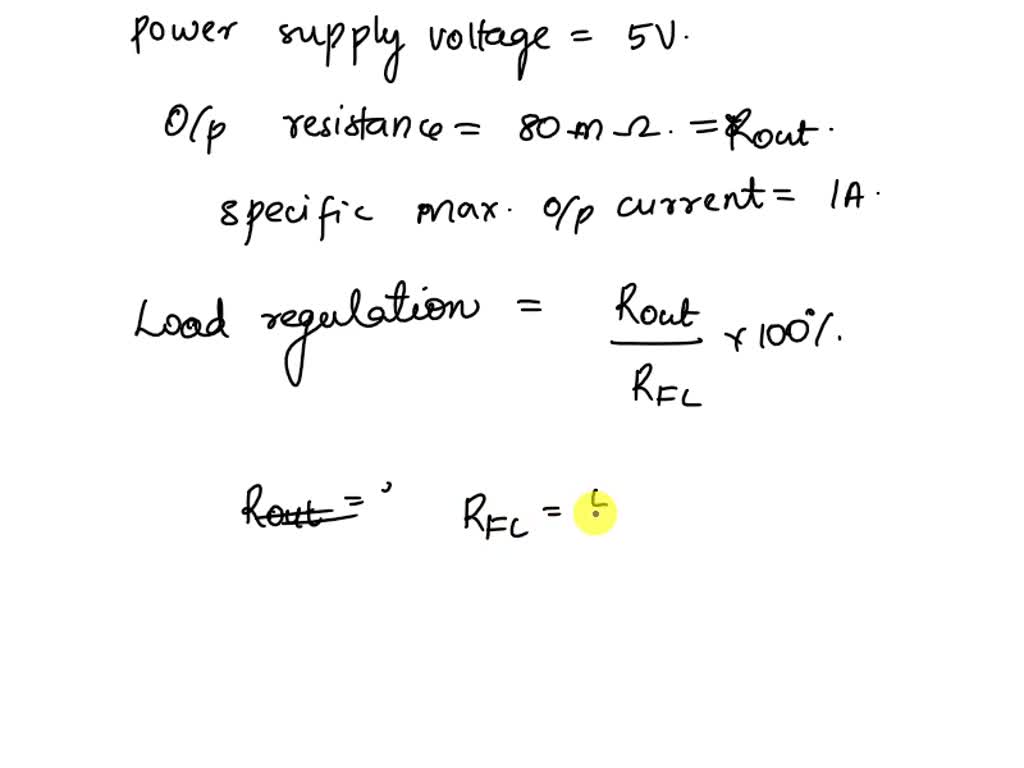 Power supply voltage = 5V.
O/p resistance = 80 m Ω. = Rout.
specific max. o/p current = 1A.
Load regulation = Rout / RFL × 100%.
Rout = RFL =